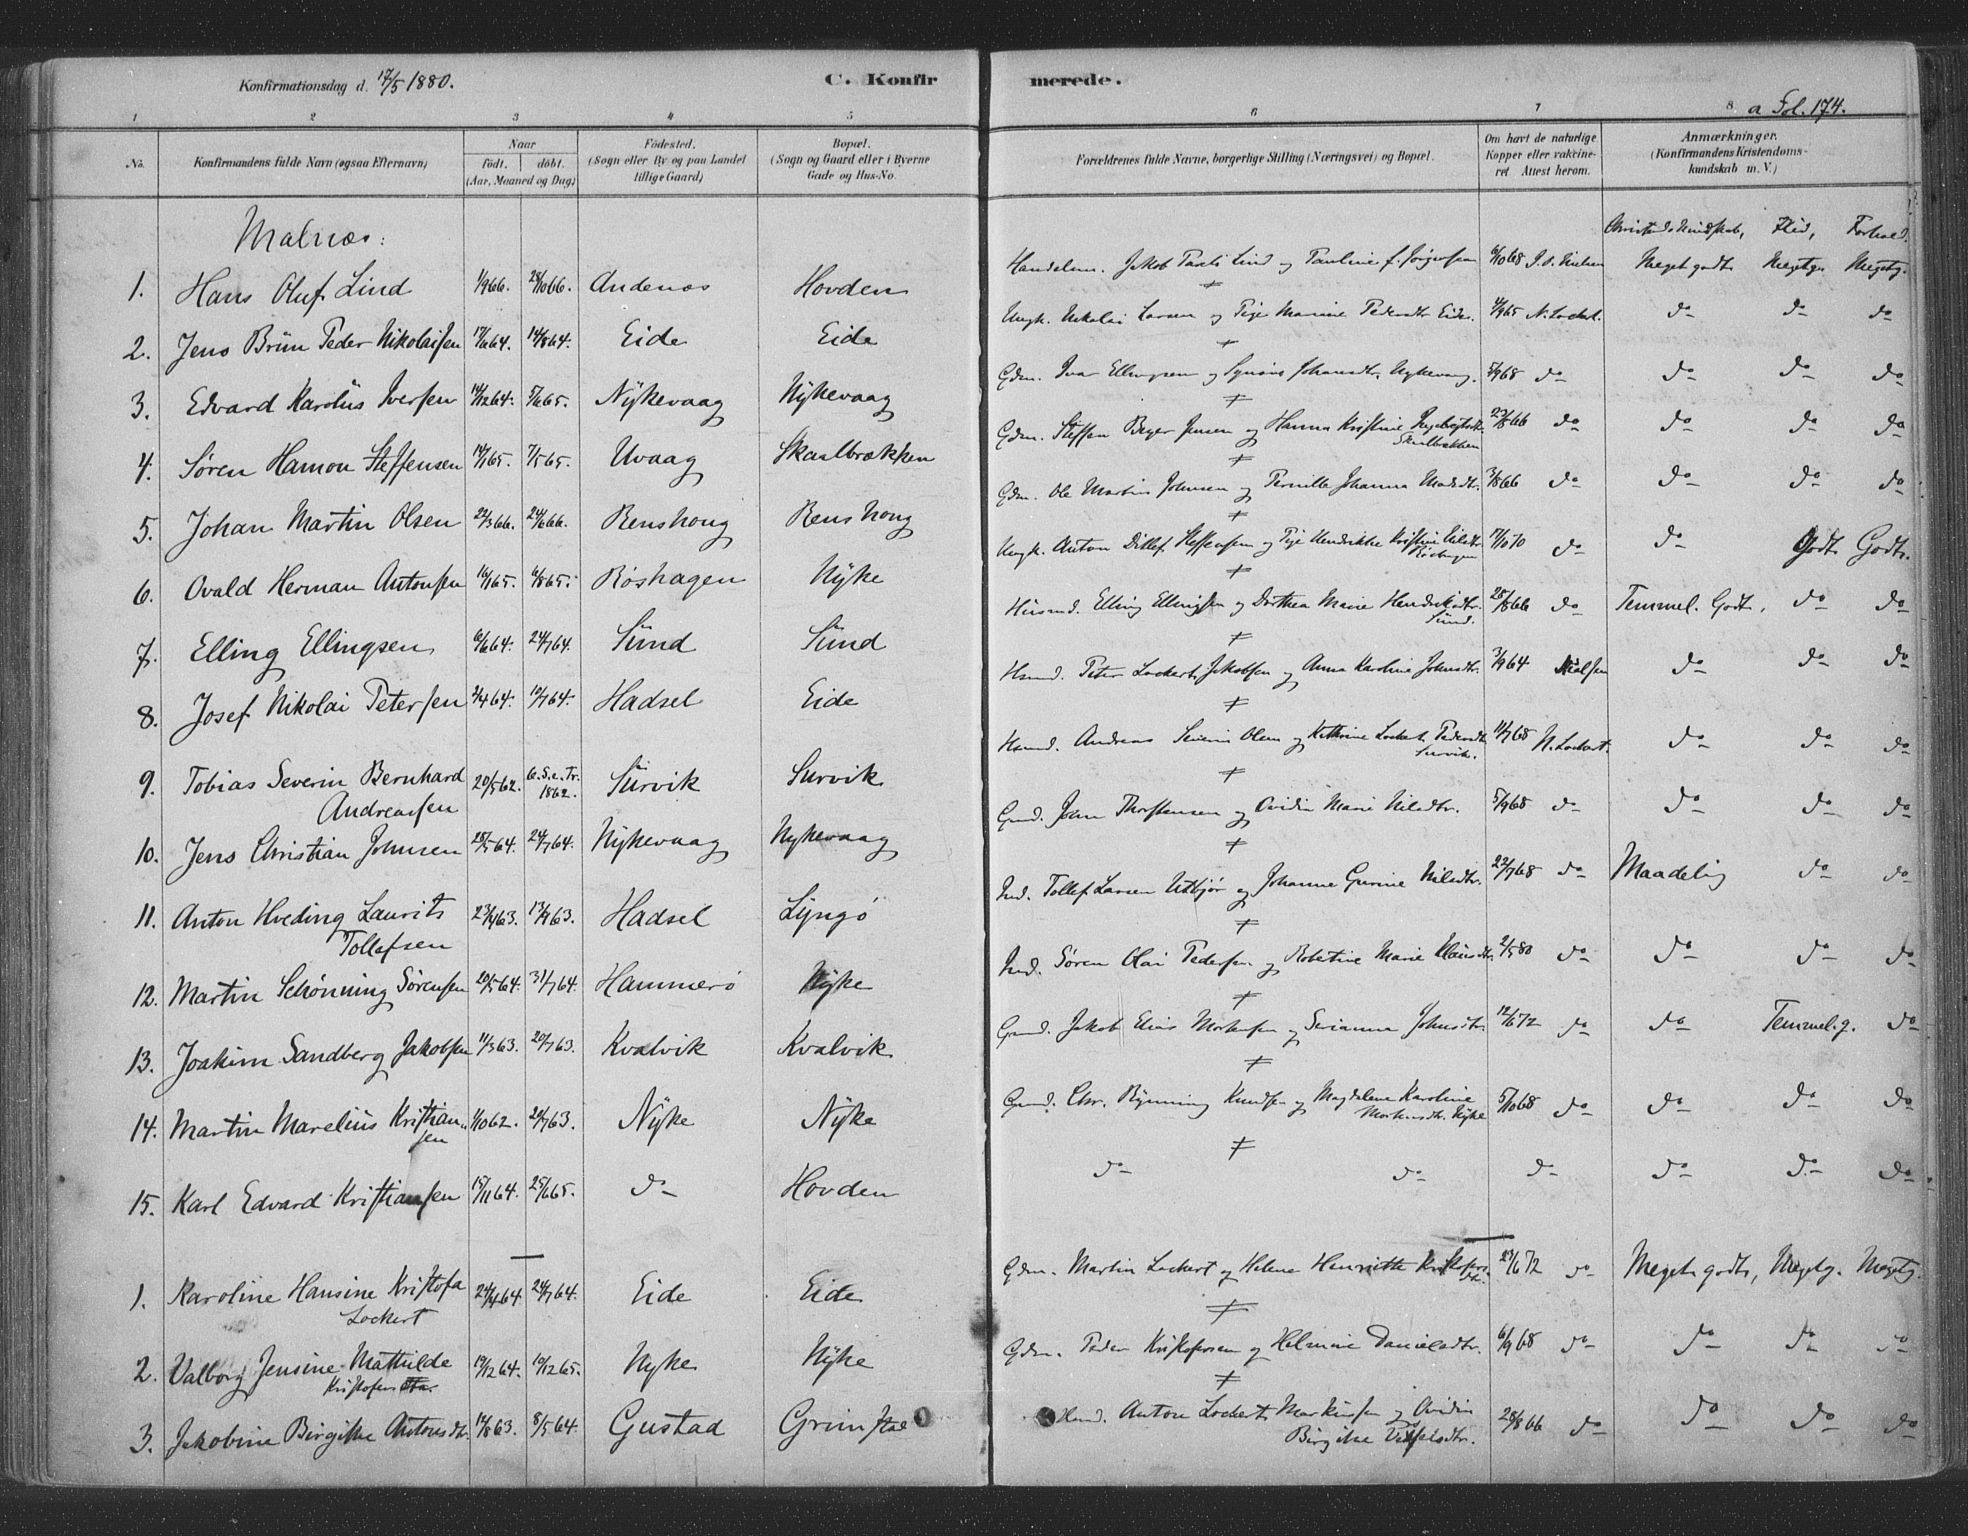 Konfirmationsdag d. 17/5 1880. C. Konfirmerede.
a Fol. 174.
1 2 3 4 5 6 7 8
No. Konfirmandens fulde Navn (ogsaa Efternavn) Naar födt. döbt. (Aar, Maaned og Dag) Födested. (Sogn eller By og paa Landet tillige Gaard) Bopæl. (Sogn og Gaard eller i Byerne Gade og Hus-No. Forældrenes fulde Navne, borgerlige Stilling (Næringsvei) og Bopæl. Om havt de naturlige Kopper eller vakcineret Attest herom. Anmærkninger. (Konfirmandens Kristendomskundskab m. V.)
Malnæs:
Christendskundskab, Flid, Forhold.
1. Hans Oluf Lind 1/9 66. 28/10 66. Andenæs Hovden Handelsm. Jakob Lind og Pauline f. Jørgensen 6/10 68 Meget godt Megetg. Megetg.
2. Jens Brün Peder Nikolaisen 17/6 64. 14/8 64. Eide Eide Ungk. Nikolai Larsen og Marine Pedersdtr Eide. 4/9 65 N. Lockert. do do do
3. Edvard Karolüs Iversen 14/12 64. 5/6 65. Nÿkevaag Nÿkevaag Gdm. Ivar Ellingsen og Johansdtr. Nykevaag. 5/9 68 do do do do
4. Søren Hamon Steffensen 14/1 65. 7/5 65. Uvaag Skaalbrækken Gdm. Steffen Beyer Jensen og Hanna Kristine Skalbrækken 23/8 66 do do do do
5. Johan Martin Olsen 22/3 66. 24/6 66. Renshoug Renshoug Gdm. Ole Martin Johnsen og Pernille Johanna Madsdtr. 3/8 66 do do do do
6. Ovald Herman Antonsen 16/1 65. 6/8 65. Røshagen Nÿke Ungk. Anton Ditlef Steffensen og Hendrikke Kristine Nilsdtr 17/10 70 do do Godt Godt.
7. Elling Ellingsen 6/6 64. 24/7 64. Sünd Sünd Hüsmd. Elling Ellingsen og Dorthea Marie Hendriksdtr. Sünd. 28/8 66 do Temmel. Godt, do do
8. Josef Nikolai Petersen 2/4 64. 10/7 64. Hadsel Eide Hsmd. Peter Lockert Jakobsen og Anna Karoline Johnsdtr. 3/9 64 Nielsen do do do
9. Tobias Severin Bernhard Andreasen 20/5 62. 6. S. e. Tr. 1862. Sürvik Survik Hsmd. Andreas Severin Olsen og Kathrine Lockert Pedersdtr Survik. 11/7 68 N. Lockert. do do do
10. Jens Christian Johnsen 28/5 64. 24/7 64. Nÿkevaag Nykevaag Gmd. John Thorstensen og Ovidia Marie Nilsdtr. 5/9 68 do do do do
11. Anton Hveding Laurits Tollefsen 23/4 63. 13/9 63. Hadsel Lÿngö Ind. Tollef Larsen Utbjör og Johanne Gurine Nilsdtr. 22/7 68 do Maadelig do do
12. Martin Schönning Sörensen 20/5 64. 31/7 64. Hammerö Nÿke Ind. Sören Olai Pedersen og Robertine Marie Klausdtr. 2/5 80 do do do do
13. Joakim Sandberg Jakobsen 11/3 63. 20/7 63. Kvalvik Kvalvik Gmd. Jakob Elias Mortensen og Serianna Johnsdtr. 12/6 72 do do Temmel. g. do
14. Martin Marelius Kristiansen 1/10 62. 20/7 63. Nÿke Nÿke Gmd. Chr. Rÿnning Knudsen og Magdalena Karoline Mortensdtr. Nÿke 5/10 68 do do do do
15. Karl Edvard Kristiansen 15/11 64. 25/6 65. do Hovden do do do do do do
1. Karoline Hansine Kristofa Lockert 24/4 64. 24/7 64. Eide Eide Gdm. Martin Lockert og Helene Henriette Kristofersdtr. 23/6 72 do Meget godt, Megetg. Megetg.
2. Valborg Jensine Mathilde Kristofersdtr 19/12 64. 10/12 65. Nyke Nÿke Gdm. Peder Kristofersen og Helmine Danielsdtr. 6/9 68 do do do do
3. Jakobine Birgitte Antonsdtr. 14/8 63. 8/5 64. Gustad Grimstad Hmd. Anton Lockert Martinsen og Ovidia Birgitte 28/8 66 do do do do